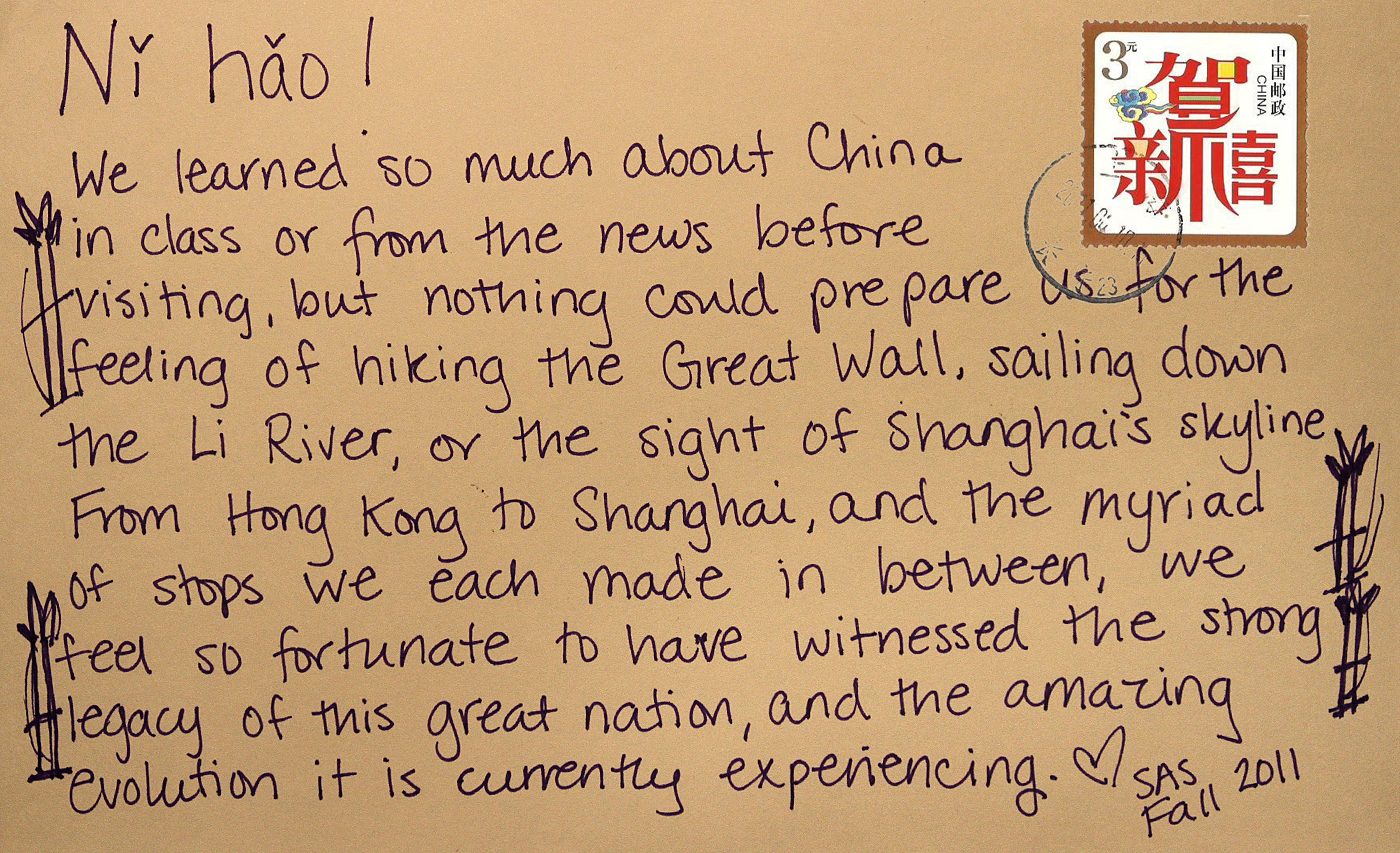 Nǐ hǎo!
3元
中国邮政
CHINA
賀
新禧
We learned so much about China
in class or from the news before
visiting, but nothing could prepare us for the
feeling of hiking the Great Wall, sailing down
the Li River, or the sight of Shanghai's skyline.
From Hong Kong to Shanghai, and the myriad
of stops we each made in between, we
feel so fortunate to have witnessed the strong
legacy of this great nation, and the amazing
evolution it is currently experiencing. ♡ SAS
Fall 2011